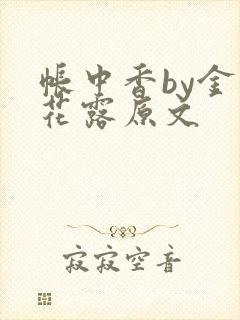 帐中香by金
花露原文
寂寂空音